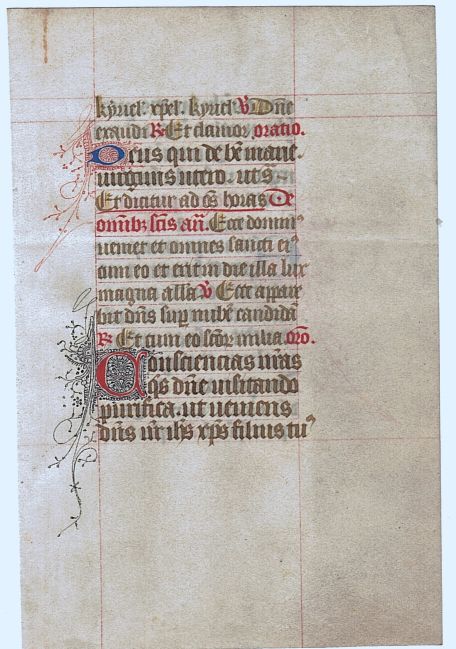 kyriel'. xp̄el'. kyriel' V Dn̄e
exaudi R Et clamor, oratio.
Deus qui de be᷒ marie
uirginis utero. ut s
Et dicitur ad o᷒s horas De
omĩbꝫ sc̃is añ. Ecce domin᷒
ueniet et omnes sancti ei᷒
cum eo et erit in die illa lux
magna alla V Ecce appare
bit dñs sup nubē candidā
R Et cum eo sc̄oꝝ milia. oro.
Consciencias nr̄as
qs̄ dn̄e uisitando
purifica. ut ueniens
dn̄s nr̄ ihs̄ xp̄s filius tu᷒